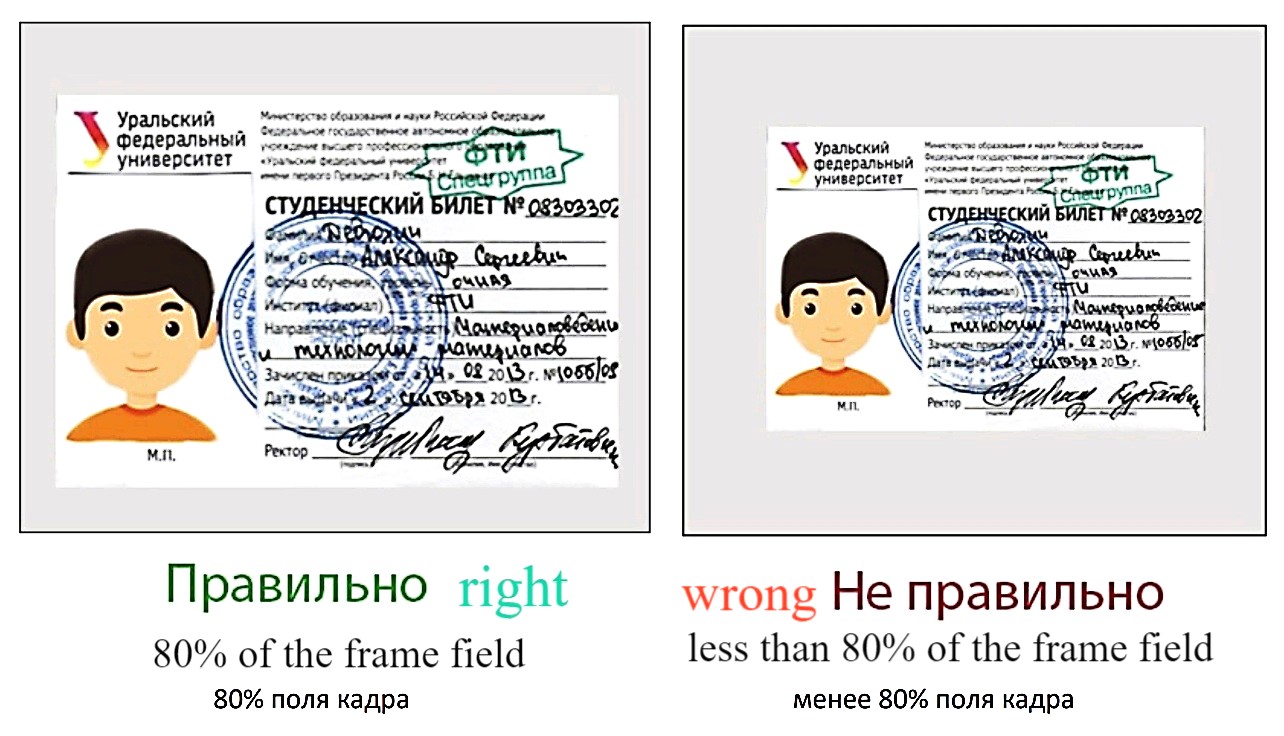 Уральский
федеральный
университет
Министерство образования и науки Российской Федерации
Федеральное государственное автономное образовательное
учреждение высшего профессионального
«Уральский федеральный университет
имени первого Президента России
ФТИ
Спецгруппа
СТУДЕНЧЕСКИЙ БИЛЕТ № 08303302
Фамилия
Имя, Отчество Александр Сергеевич
Форма обучения, очная
Институт (филиал) ФТИ
Направление (специальность) Материаловедение
и технологии материалов
Зачислен приказом от «14» 08 2013 г. №1066/08
Дата выдачи «2» сентября 2013 г.
Ректор
М.П.
Уральский
федеральный
университет
Министерство образования и науки Российской Федерации
Федеральное государственное автономное образовательное
учреждение высшего профессионального
«Уральский федеральный университет
имени первого Президента России
ФТИ
Спецгруппа
СТУДЕНЧЕСКИЙ БИЛЕТ № 08303302
Фамилия
Имя, Отчество Александр Сергеевич
Форма обучения, очная
Институт (филиал) ФТИ
Направление (специальность) Материаловедение
и технологии материалов
Зачислен приказом от «14» 08 2013 г. №1066/08
Дата выдачи «2» сентября 2013 г.
Ректор
М.П.
Правильно right
80% of the frame field
80% поля кадра
wrong Не правильно
less than 80% of the frame field
менее 80% поля кадра